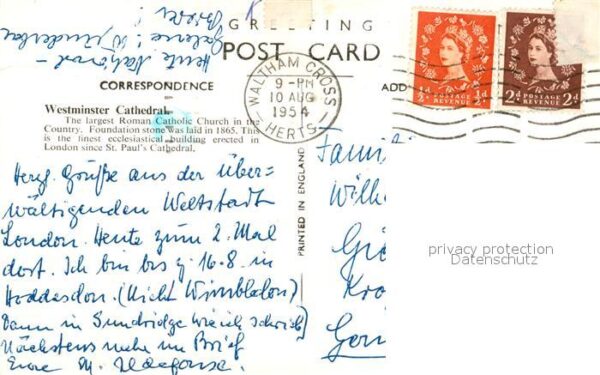 GREETING
POST CARD
CORRESPONDENCE
ADD
Westminster Cathedral.
The largest Roman Catholic Church in the
Country. Foundation stone was laid in 1865. This
is the finest ecclesiastical building erected in
London since St. Paul's Cathedral.
WALTHAM CROSS
9-PM
10 AUG
1954
HERTS
½d POSTAGE REVENUE ½d
2d POSTAGE REVENUE 2d
PRINTED IN ENGLAND
Heute National-
Galerie! Wunderbar
Herzl. Grüße aus der über-
wältigenden Weltstadt
London. Heute zum 2. Mal
dort. Ich bin bis z. 16.8. in
Hoddesdon. (Nicht Wimbledon)
Dann in Sundridge
Nächstens mehr im Brief
Eure M. Ildefonsa.
Fami
Wilh
Gi
Kr
Ger
privacy protection
Datenschutz